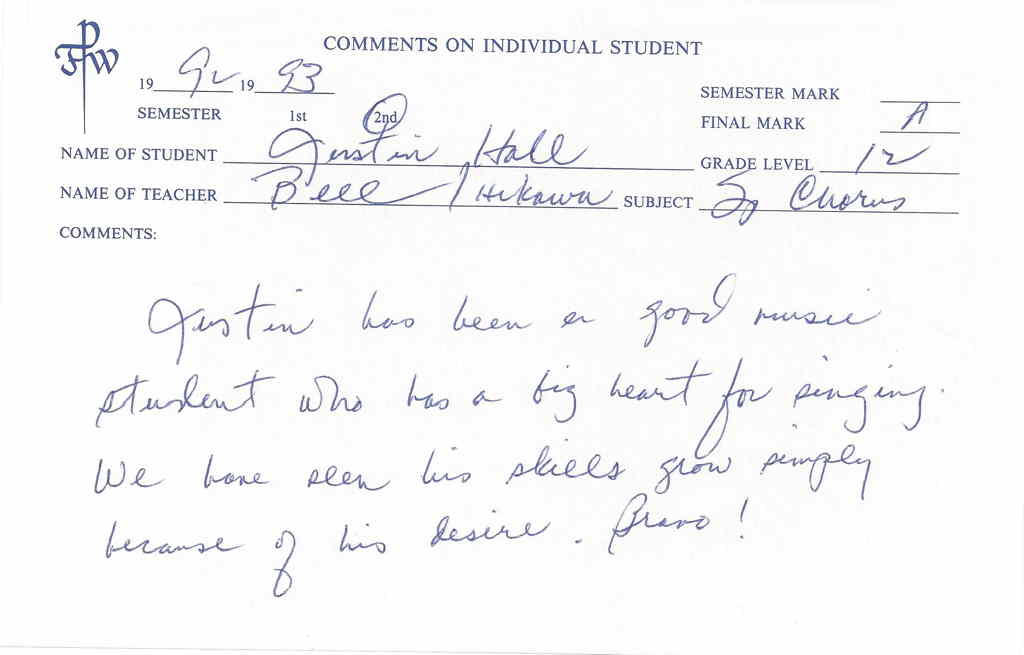 FPW
COMMENTS ON INDIVIDUAL STUDENT
19 92 19 93
SEMESTER 1st 2nd
SEMESTER MARK
FINAL MARK A
NAME OF STUDENT Justin Hall GRADE LEVEL 12
NAME OF TEACHER Bell / Hikawa SUBJECT Chorus
COMMENTS:
Justin has been a good music
student who has a big heart for singing.
We have seen his skills grow simply
because of his desire. Bravo!